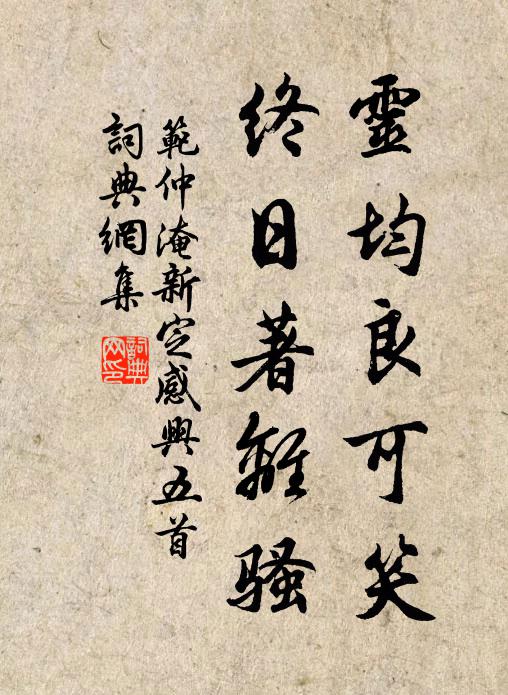 靈均良可笑
終日著離騷
範仲淹新定感興五首
詞典網集
詞典
网印